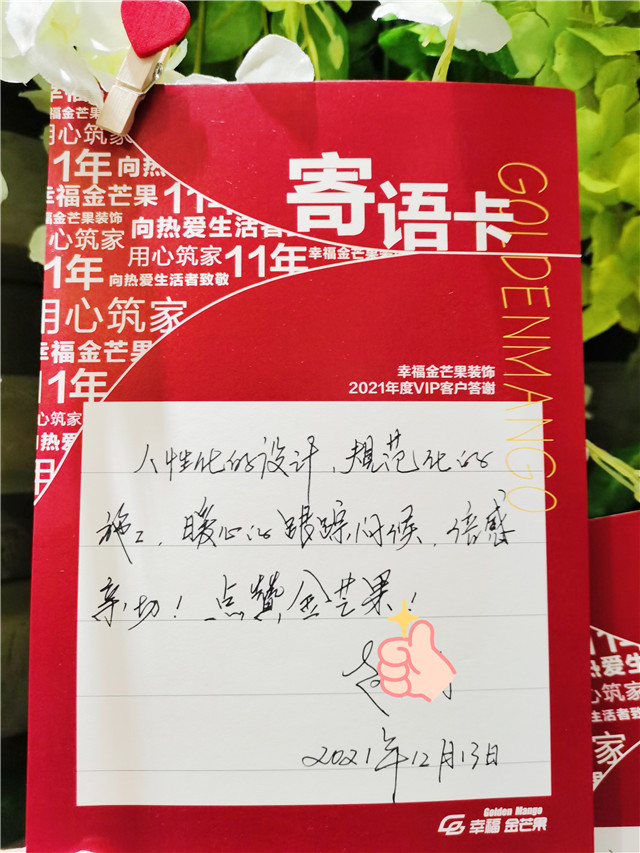 幸福金芒果
幸福金芒果装饰
用心筑家
11年 向热
幸福金芒果 11年
幸福金芒果装饰 向热爱生活者
用心筑家 用心筑家 11年 幸福金芒果
11年 向热爱生活者致敬
用心筑家
幸福金芒果
11年
用心筑家
向热爱
用
寄语卡
GOLDENMANGO
幸福金芒果装饰
2021年度VIP客户答谢
人性化的设计、规范化的
施工、暖心的跟踪问候、倍感
亲切！点赞金芒果！
2021年12月13日
Golden Mango
幸福 金芒果
11年
幸福金芒
用心筑
向热爱生活者
幸福